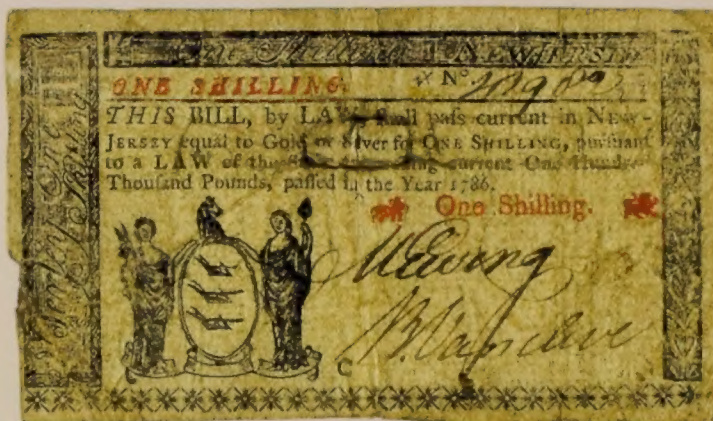 One Shilling NEW-JERSEY
ONE SHILLING. No
THIS BILL, by LAW shall paſs current in NEW-
JERSEY equal to Gold or Silver for ONE SHILLING, purſuant
to a LAW of current One Hundred
Thouſand Pounds, paſſed in the Year 1786.
One Shilling.
Jerſey One
Shilling
M Ewing
B. Vancleve
C